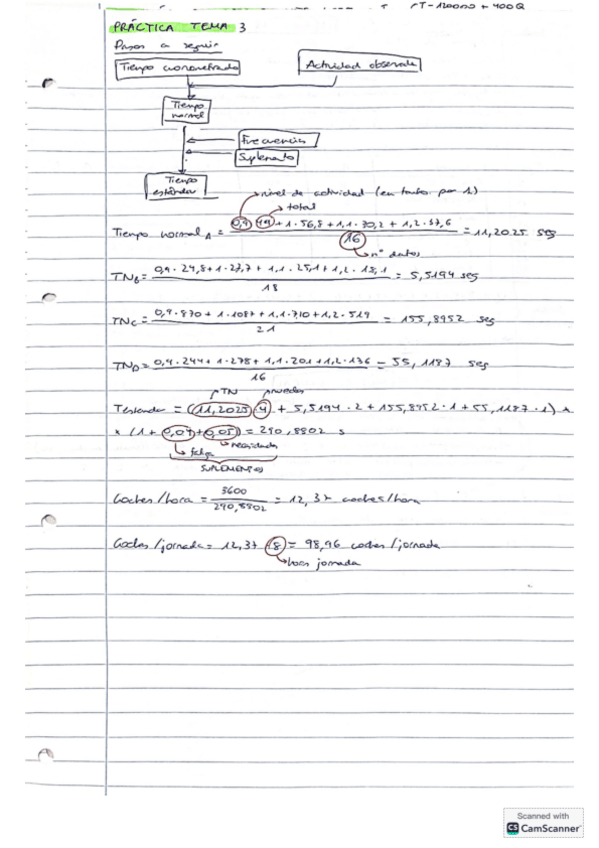 CT = 120000 + 400Q
PRÁCTICA TEMA 3
Pasos a seguir
Tiempo cronometrado
Actividad observada
Tiempo normal
Frecuencia
Suplemento
Tiempo estándar
nivel de actividad (en tanto por 1)
total
Tiempo normal A = + 1 · 56,8 + 1,1 · 70,2 + 1,2 · 37,6 / 16 = 11,2025 seg
nº datos
TNB = 0,9 · 24,8 + 1 · 27,7 + 1,1 · 25,1 + 1,2 · 15,1 / 18 = 5,5194 seg
TNC = 0,9 · 870 + 1 · 1087 + 1,1 · 710 + 1,2 · 519 / 21 = 155,8952 seg
TND = 0,9 · 244 + 1 · 278 + 1,1 · 201 + 1,2 · 136 / 16 = 55,1187 seg
TN ruedas
Testandar = (11,2025 · 4 + 5,5194 · 2 + 155,8952 · 1 + 55,1187 · 1) *
* (1 + 0,04 + 0,05) = 290,8802 s
necesidades
fatiga
SUPLEMENTOS
Coches/hora = 3600 / 290,8802 = 12,37 coches/hora
Coches/jornada = 12,37 · 8 = 98,96 coches/jornada
horas jornada
Scanned with
CS CamScanner